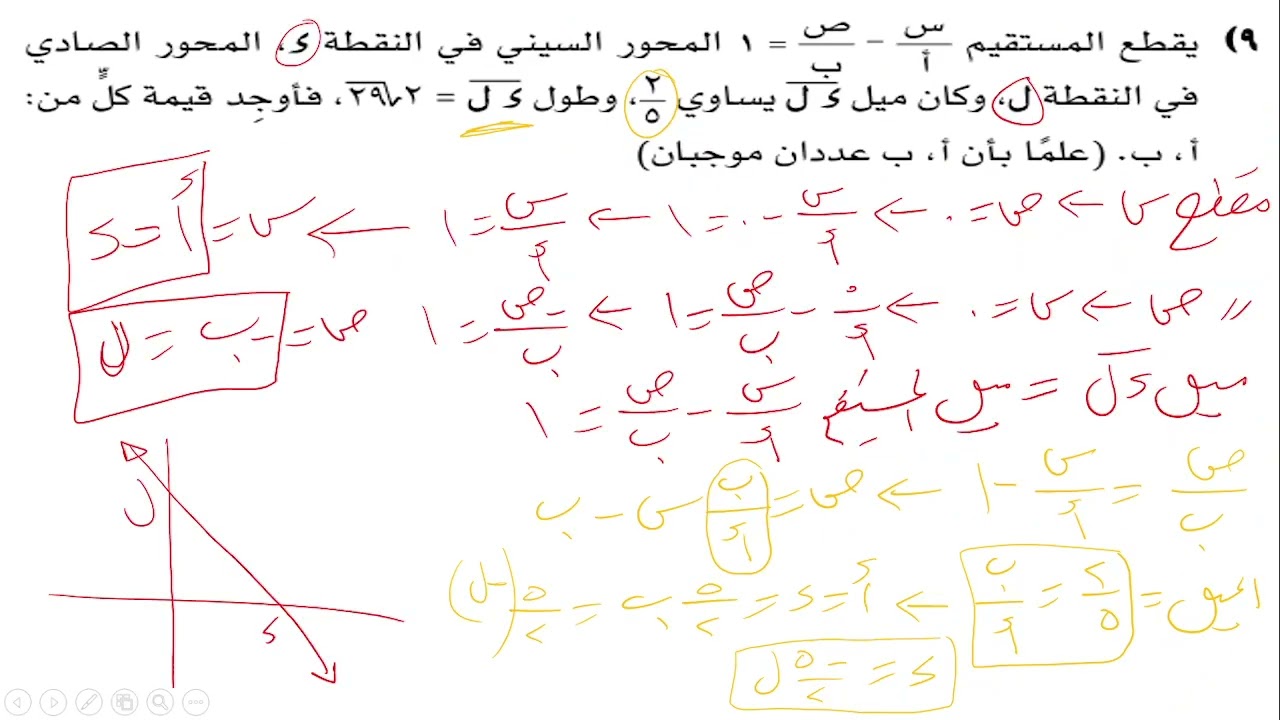 ٩) يقطع المستقيم س/أ − ص/ب = ١ المحور السيني في النقطة ء، المحور الصادي
في النقطة ل، وكان ميل ء ل يساوي ٢/٥، وطول ء ل = ٢√٢٩، فأوجِد قيمة كلٍّ من:
أ، ب. (علمًا بأن أ، ب عددان موجبان)
مقطع س ← ص = ٠ ← س/أ − ٠ = ١ ← س/أ = ١ ← س = أ = ء
〃 ص ← س = ٠ ← ٠/أ − ص/ب = ١ ← −ص/ب = ١
ص = −ب = ل
ميل ء ل = ميل المستقيم س/أ − ص/ب = ١
ص/ب = س/أ − ١ ← ص = ب/أ س − ب
الميل = ٢/٥ = ب/أ ← أ = ء = ٥/٢ ب = ٥/٢ (−ل)
ء = −٥/٢ ل
ل
ء